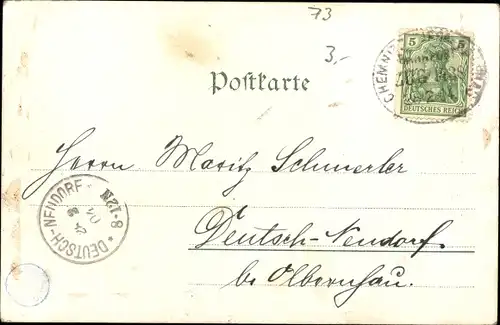 73
3,-
Postkarte
5 5
DEUTSCHES REICH
CHEMNITZ
ZUG
Herrn Moritz Schmerler
Deutsch-Neudorf
b/o Olbernhau.
* DEUTSCH-NEUDORF *
8-12N